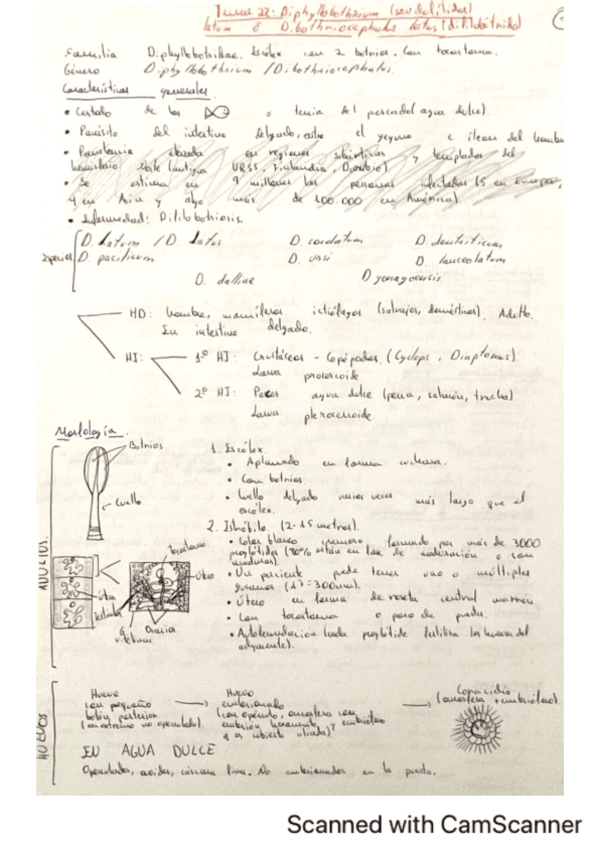 Tema 22: Diphyllobothrium (seudofílidos)
latum ó Dibothriocephalus latus (difilobótrido)
Familia Diphyllobothridae. Escólex con 2 botrios. Con tocostoma.
Género Diphyllobothrium / Dibothriocephalus.
Características generales.
• Cestodo de los o tenia del pescado (agua dulce).
• Parásito del intestino delgado, entre el yeyuno e íleon del hombre
• Parasitemia elevada en regiones subárticas y templadas del
hemisferio Norte (antigua URSS, Finlandia, Danubio)
• Se estima en 9 millones las personas infectadas (5 en Europa,
4 en Asia y algo más de 100.000 en América).
• Enfermedad: Difilobotriosis.
Especies
D. latum / D. latus D. cordatum D. dentriticum
D. pacificum D. ursi D. lanceolatum
D. dalliae D. yonagoensis
HD: hombre, mamíferos ictiófagos (salvajes, domésticos). Adulto.
En intestino delgado.
HI:
1º HI: Crustáceos - Copépodos (Cyclops, Diaptomus)
Larva procercoide
2º HI: Peces agua dulce (perca, salmón, trucha)
Larva plerocercoide.
Morfología.
ADULTOS.
Botrios
Cuello
1. Escólex.
• Aplanado en forma cuchara.
• Con botrios
• Cuello delgado varias veces más largo que el
escólex.
2. Estróbilo. (2-15 metros).
• Color blanco formado por más de 3000
proglótides (80% están en fase de maduración o son
maduras).
• Un paciente puede tener uno o múltiples
gusanos
• Útero en forma de roseta central marrón
• Con tocostoma o poro de puesta.
• Autofecundación (cada proglótide fertiliza los huevos del
adyacente).
tocostoma
Útero
Útero
Ovario
G. vitelinas
HUEVOS
Huevo
con pequeño
botón posterior
(en extremo no operculado)
Huevo
embrionado
(con opérculo, oncosfera con
embrión hexacanto, y embrióforo
q es cubierta ciliada)
Coracidio
(oncosfera + embrióforo).
EN AGUA DULCE
Operculados, ovoides, cáscara fina. No embrionados en la puesta.
Scanned with CamScanner